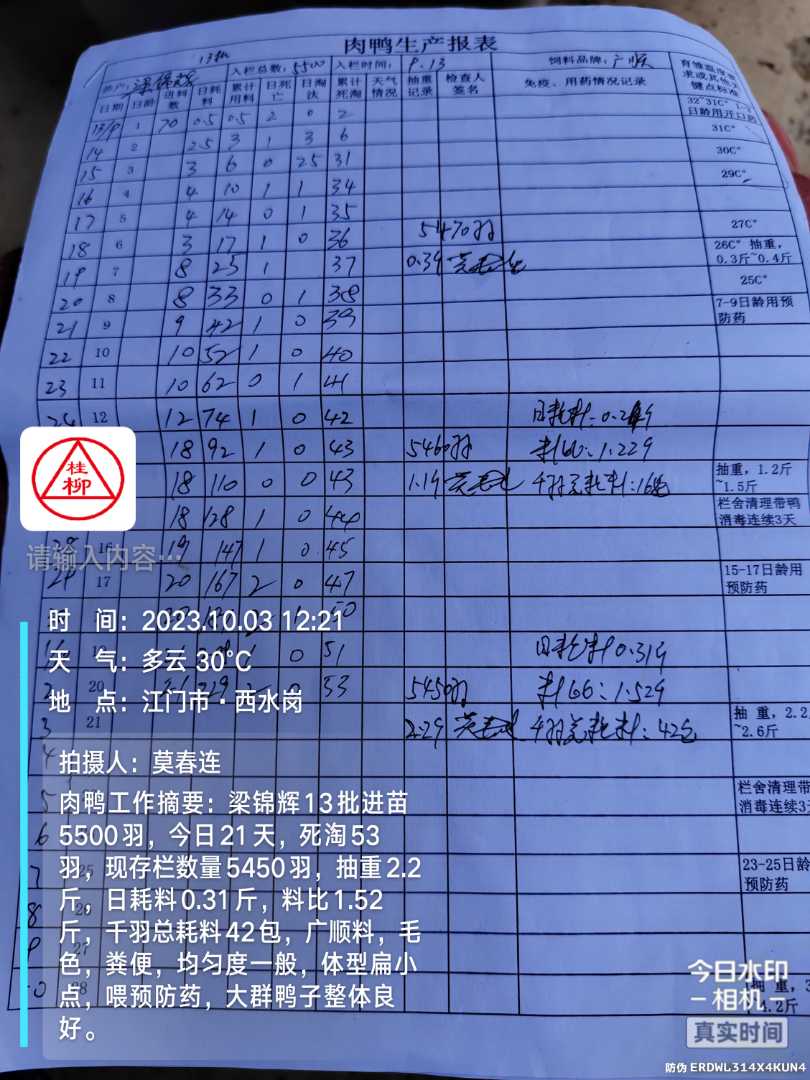 肉鸭生产报表
13批
养户: 梁锦辉 入栏总数: 5500 入栏时间: 9.13 饲料品牌: 广顺
日期 日龄 进料数 日耗料 累计用料 日死亡 日淘汰 累计死淘 天气情况 抽重记录 检查人签名 免疫、用药情况记录
13/9 1 70 0.5 0.5 2 0 2 32~31C°
日龄用开口药
14 2 2.5 3 1 3 6 31C°
15 3 3 6 0 25 31 30C°
16 4 4 10 1 1 34 29C°
17 5 4 14 0 1 35 27C°
18 6 3 17 1 0 36 5470羽 26C° 抽重,
0.3斤~0.4斤
19 7 8 25 1 37 0.39 莫春连 25C°
20 8 8 33 0 1 38 7-9日龄用预
防药
21 9 9 42 1 0 39
22 10 10 52 1 0 40
23 11 10 62 0 1 41
24 12 12 74 1 0 42 日耗料:
18 92 1 0 43 5460羽 料比: 1.22斤
18 110 0 0 43 1.1斤 莫春连 千羽总耗料: 16包 抽重, 1.2斤
~1.5斤
18 128 1 0 44 栏舍清理带鸭
消毒连续3天
16 19 147 1 0 45
17 20 167 2 0 47 15-17日龄用
预防药
50
1 0 51 日耗料0.31斤
2 20 0 53 5450羽 料比: 1.52斤
3 21 2.2斤 莫春连 千羽总耗料: 42包 抽重, 2.2
~2.6斤
4
5 栏舍清理带
消毒连续3
6
7 25 23-25日龄
预防药
8 26
9 27
10 28 抽重, 3
4.2斤
桂
柳
请输入内容…
时 间: 2023.10.03 12:21
天 气: 多云 30°C
地 点: 江门市·西水岗
拍摄人: 莫春连
肉鸭工作摘要: 梁锦辉13批进苗
5500羽, 今日21天, 死淘53
羽, 现存栏数量5450羽, 抽重2.2
斤, 日耗料0.31斤, 料比1.52
斤, 千羽总耗料42包, 广顺料, 毛
色, 粪便, 均匀度一般, 体型扁小
点, 喂预防药, 大群鸭子整体良
好。
今日水印
-相机-
真实时间
防伪 ERDWL314X4KUN4